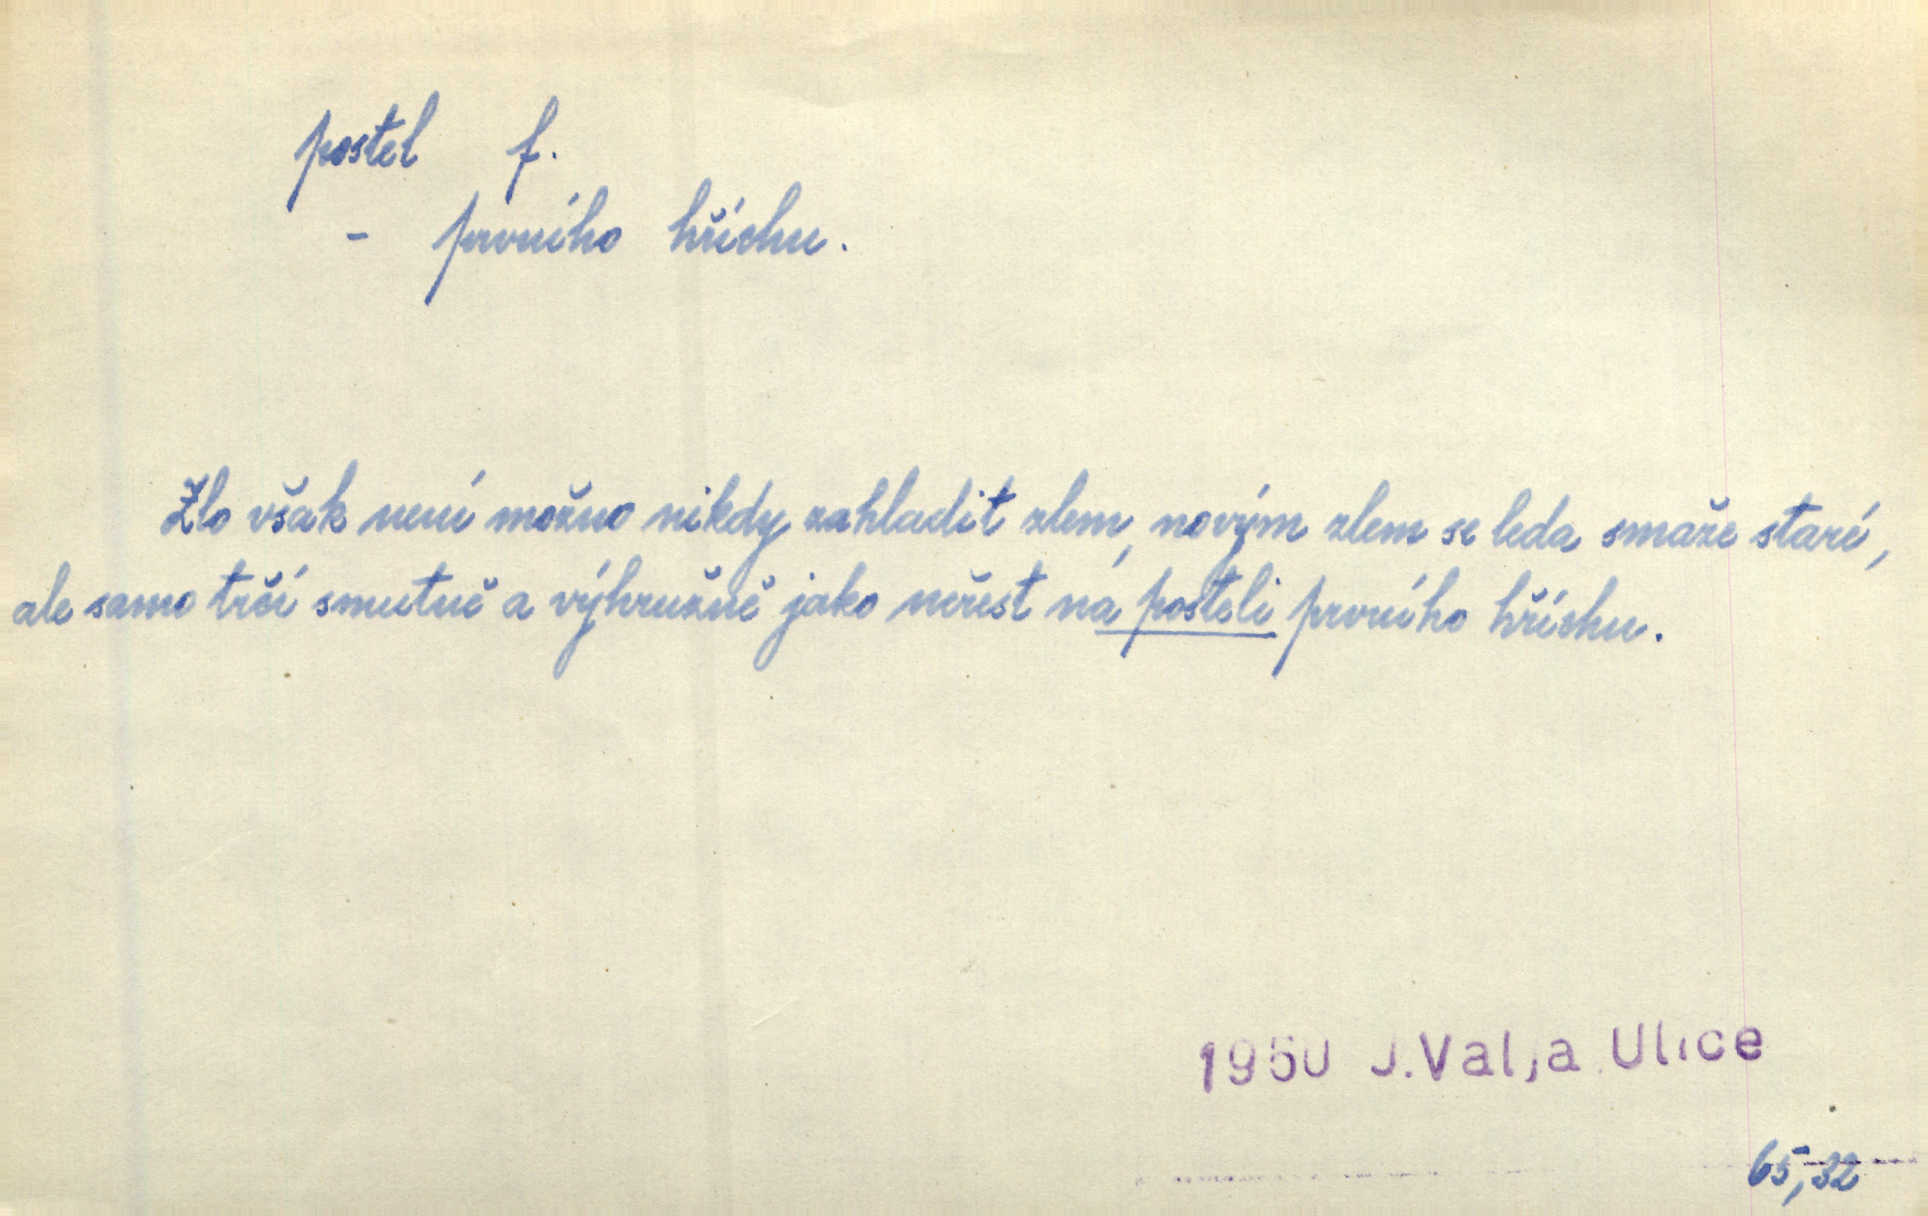 postel f.
- prvního hříchu.
Zlo však není možno nikdy zahladit zlem, novým zlem se leda smaže staré,
ale samo trčí smutně a výhružně jako neřest na posteli prvního hříchu.
1950 J.Valja Ulice
65,32